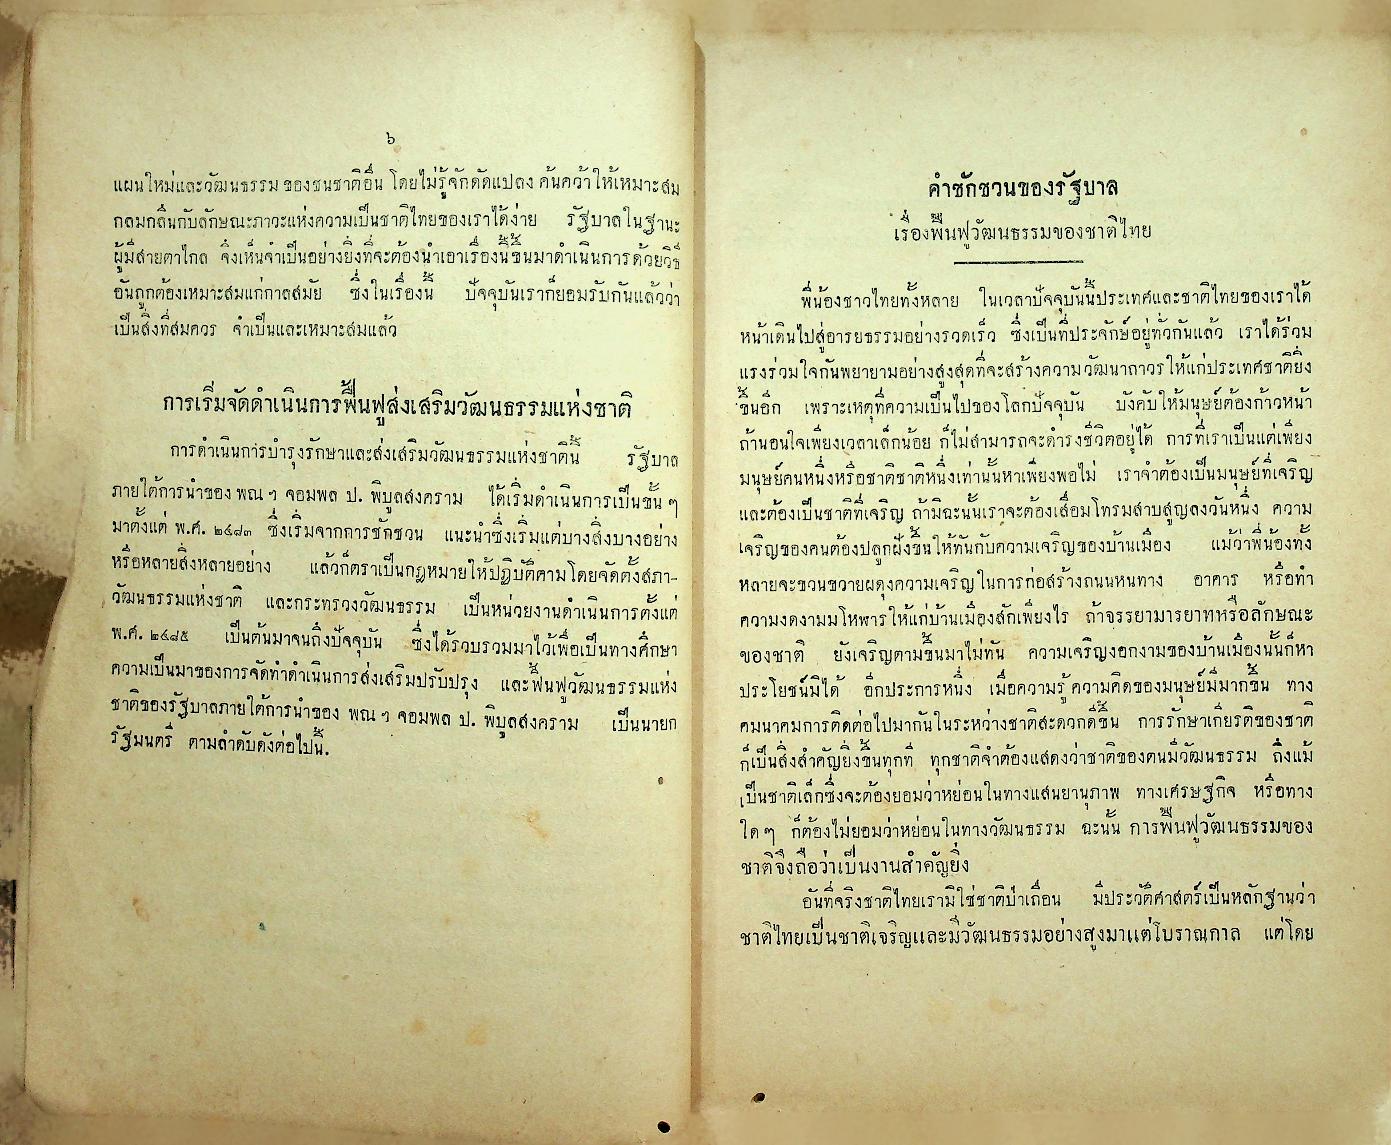 ๖
แผนใหม่และวัฒนธรรม ของชนชาติอื่น โดยไม่รู้จักดัดแปลง ค้นคว้าให้เหมาะสม
กลมกลืนกับลักษณะภาวะแห่งความเป็นชาติไทยของเราได้ง่าย รัฐบาลในฐานะ
ผู้มีสายตาไกล จึงเห็นจำเป็นอย่างยิ่งที่จะต้องนำเอาเรื่องนี้ขึ้นมาดำเนินการด้วยวิธี
อันถูกต้องเหมาะสมแก่กาลสมัย ซึ่งในเรื่องนี้ ปัจจุบันเราก็ยอมรับกันแล้วว่า
เป็นสิ่งที่สมควร จำเป็นและเหมาะสมแล้ว
การเริ่มจัดดำเนินการฟื้นฟูส่งเสริมวัฒนธรรมแห่งชาติ
การดำเนินการบำรุงรักษาและส่งเสริมวัฒนธรรมแห่งชาตินี้ รัฐบาล
ภายใต้การนำของ พณฯ จอมพล ป. พิบูลสงคราม ได้เริ่มดำเนินการเป็นขั้น ๆ
มาตั้งแต่ พ.ศ. ๒๔๘๓ ซึ่งเริ่มจากการชักชวน แนะนำซึ่งเริ่มแต่บางสิ่งบางอย่าง
หรือหลายสิ่งหลายอย่าง แล้วก็ตราเป็นกฎหมายให้ปฏิบัติตามโดยจัดตั้งสภา-
วัฒนธรรมแห่งชาติ และกระทรวงวัฒนธรรม เป็นหน่วยงานดำเนินการตั้งแต่
พ.ศ. ๒๔๘๕ เป็นต้นมาจนถึงปัจจุบัน ซึ่งได้รวบรวมมาไว้เพื่อเป็นทางศึกษา
ความเป็นมาของการจัดทำดำเนินการส่งเสริมปรับปรุง และฟื้นฟูวัฒนธรรมแห่ง
ชาติของรัฐบาลภายใต้การนำของ พณฯ จอมพล ป. พิบูลสงคราม เป็นนายก
รัฐมนตรี ตามลำดับดังต่อไปนี้.
คำชักชวนของรัฐบาล
เรื่องฟื้นฟูวัฒนธรรมของชาติไทย
พี่น้องชาวไทยทั้งหลาย ในเวลาปัจจุบันนี้ประเทศและชาติไทยของเราได้
หน้าเดินไปสู่อารยธรรมอย่างรวดเร็ว ซึ่งเป็นที่ประจักษ์อยู่ทั่วกันแล้ว เราได้ร่วม
แรงร่วมใจกันพยายามอย่างสูงสุดที่จะสร้างความวัฒนาถาวรให้แก่ประเทศชาติยิ่ง
ขึ้นอีก เพราะเหตุที่ความเป็นไปของโลกปัจจุบัน บังคับให้มนุษย์ต้องก้าวหน้า
ถ้านอนใจเพียงเวลาเล็กน้อย ก็ไม่สามารถจะดำรงชีวิตอยู่ได้ การที่เราเป็นแต่เพียง
มนุษย์คนหนึ่งหรือชาติชาติหนึ่งเท่านั้นหาเพียงพอไม่ เราจำต้องเป็นมนุษย์ที่เจริญ
และต้องเป็นชาติที่เจริญ ถ้ามิฉะนั้นเราจะต้องเสื่อมโทรมสาบสูญลงวันหนึ่ง ความ
เจริญของคนต้องปลูกฝังขึ้นให้ทันกับความเจริญของบ้านเมือง แม้ว่าพี่น้องทั้ง
หลายจะขวนขวายผดุงความเจริญในการก่อสร้างถนนหนทาง อาคาร หรือทำ
ความงดงามมโหฬารให้แก่บ้านเมืองสักเพียงไร ถ้าจรรยามารยาทหรือลักษณะ
ของชาติ ยังเจริญตามขึ้นมาไม่ทัน ความเจริญงอกงามของบ้านเมืองนั้นก็หา
ประโยชน์มิได้ อีกประการหนึ่ง เมื่อความรู้ความคิดของมนุษย์มีมากขึ้น ทาง
คมนาคมการติดต่อไปมากันในระหว่างชาติสะดวกดีขึ้น การรักษาเกียรติของชาติ
ก็เป็นสิ่งสำคัญยิ่งขึ้นทุกที ทุกชาติจำต้องแสดงว่าชาติของตนมีวัฒนธรรม ถึงแม้
เป็นชาติเล็กซึ่งจะต้องยอมว่าหย่อนในทางแสนยานุภาพ ทางเศรษฐกิจ หรือทาง
ใดๆ ก็ต้องไม่ยอมว่าหย่อนในทางวัฒนธรรม ฉะนั้น การฟื้นฟูวัฒนธรรมของ
ชาติจึงถือว่าเป็นงานสำคัญยิ่ง
อันที่จริงชาติไทยเรามิใช่ชาติป่าเถื่อน มีประวัติศาสตร์เป็นหลักฐานว่า
ชาติไทยเป็นชาติเจริญและมีวัฒนธรรมอย่างสูงมาแต่โบราณกาล แต่โดย